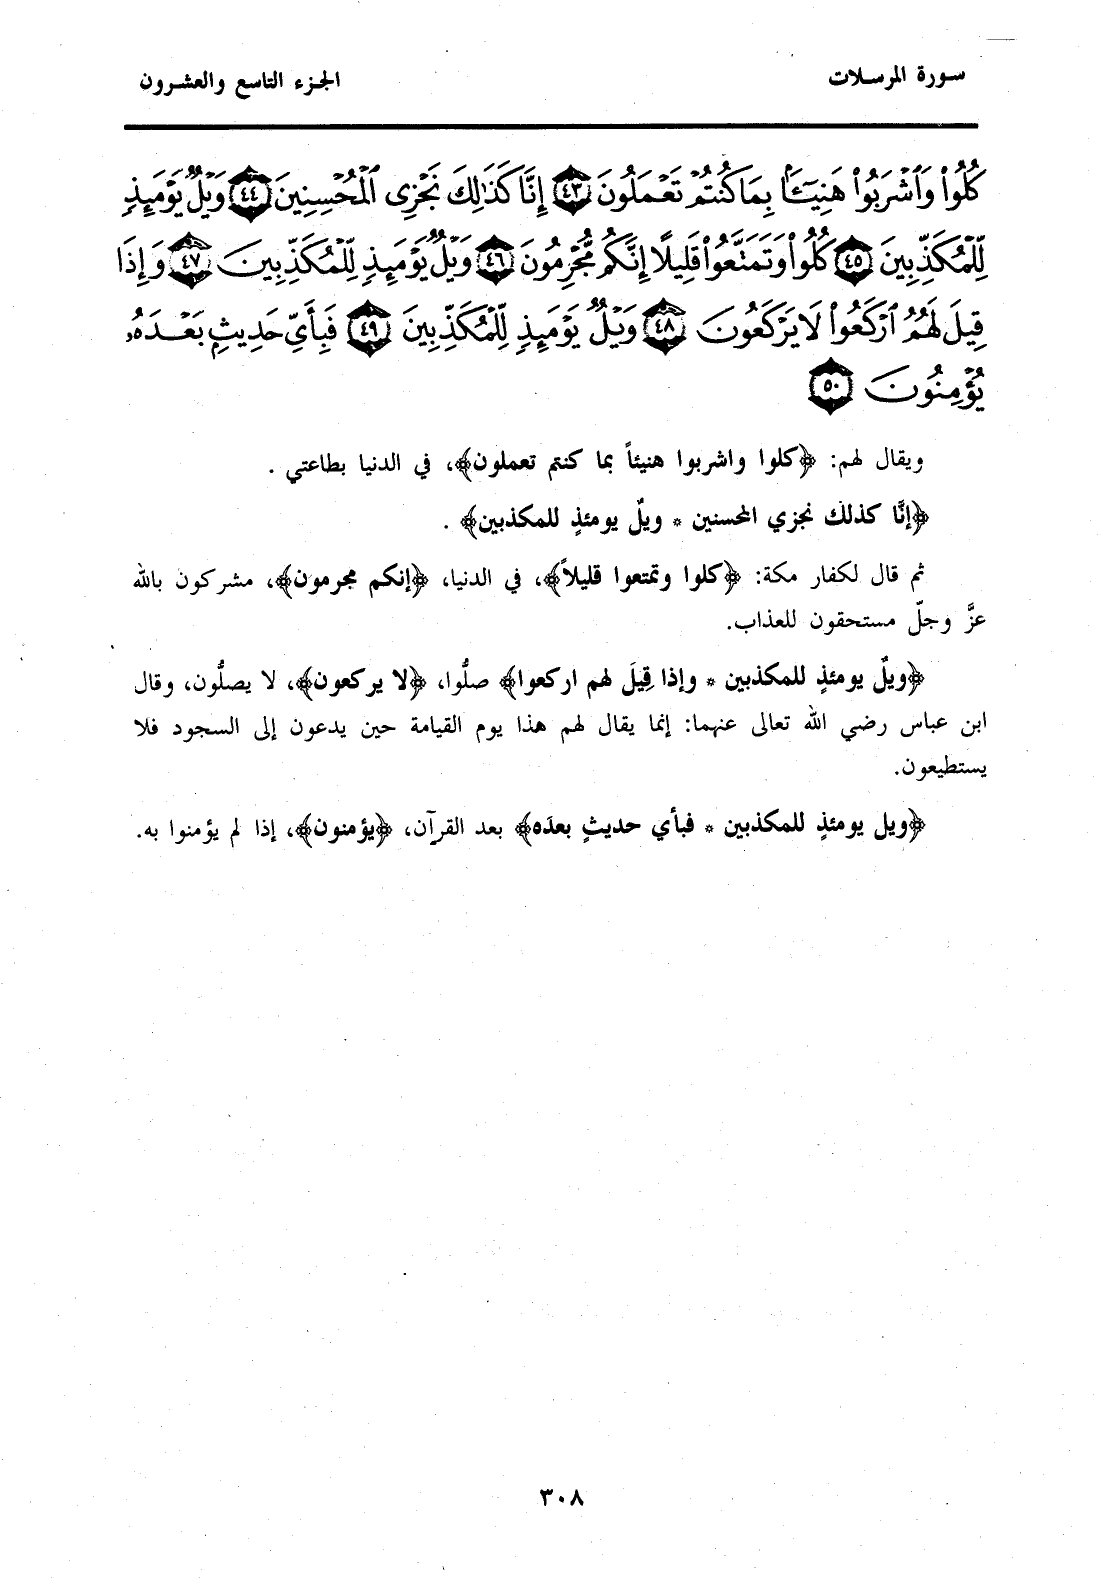 سورة المرسلات
الجزء التاسع والعشرون
كُلُوا۟ وَٱشْرَبُوا۟ هَنِيٓـَٔۢا بِمَا كُنتُمْ تَعْمَلُونَ ٤٣ إِنَّا كَذَٰلِكَ نَجْزِى ٱلْمُحْسِنِينَ ٤٤ وَيْلٌ يَوْمَئِذٍ
لِّلْمُكَذِّبِينَ ٤٥ كُلُوا۟ وَتَمَتَّعُوا۟ قَلِيلًا إِنَّكُم مُّجْرِمُونَ ٤٦ وَيْلٌ يَوْمَئِذٍ لِّلْمُكَذِّبِينَ ٤٧ وَإِذَا
قِيلَ لَهُمُ ٱرْكَعُوا۟ لَا يَرْكَعُونَ ٤٨ وَيْلٌ يَوْمَئِذٍ لِّلْمُكَذِّبِينَ ٤٩ فَبِأَىِّ حَدِيثٍۭ بَعْدَهُۥ
يُؤْمِنُونَ ٥٠
ويقال لهم: ﴿كلوا واشربوا هنيئاً بما كنتم تعملون﴾، في الدنيا بطاعتي .
﴿إنَّا كذلك نجزي المحسنين * ويلٌ يومئذٍ للمكذبين﴾ .
ثم قال لكفار مكة: ﴿كلوا وتمتعوا قليلاً﴾، في الدنيا، ﴿إنكم مجرمون﴾، مشركون بالله
عزَّ وجلّ مستحقون للعذاب.
﴿ويلٌ يومئذٍ للمكذبين * وإذا قِيلَ لهم اركعوا﴾ صلُّوا، ﴿لا يركعون﴾، لا يصلُّون، وقال
ابن عباس رضي الله تعالى عنهما: إنما يقال لهم هذا يوم القيامة حين يدعون إلى السجود فلا
يستطيعون.
﴿ويل يومئذٍ للمكذبين * فبأي حديثٍ بعدَه﴾ بعد القرآن، ﴿يؤمنون﴾، إذا لم يؤمنوا به.
٣٠٨